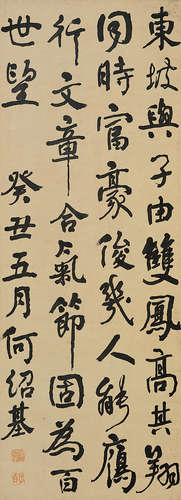 東坡與子由雙鳳高其翔
同時富豪俊幾人能鴈
行文章合氣節固為百
世望 癸丑五月何紹基